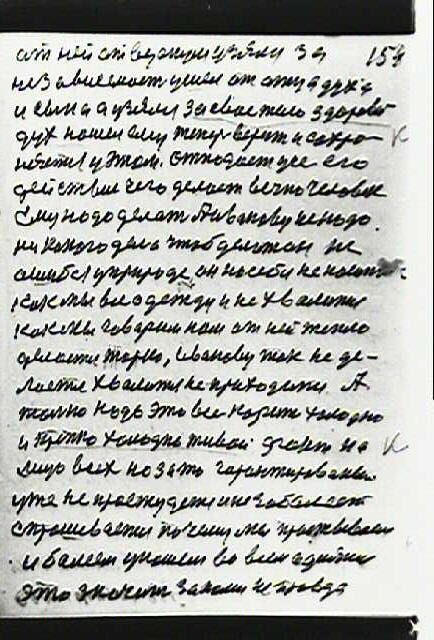 от ней отвернулись за 154
независимость ушел от отца духа
и сына а взяли за свое тело здорово
дух нашел ему теперь верят и сохра- К
няется у этом. отподает уже его
действие чего делает вечно человек
Ему надо делать А Иванову не надо.
никакого дела чтоб делать он не
ошибся у природе он на себе не носит
как мы все одежду и не хвалится
как мы говорим нам от ней тепло
делается жарко, Иванову так не де-
лается хвалится не приходится А
только надо это все надо холодно
и крепко холодно живой факт на К
лицо всех но зато гарантирован
уже не простудится и не заболеет
спрашивается почему мы простываем
и болеем у нашем во всем одетым
это значит закон не правда